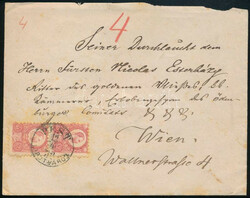 4
4
Seiner Durchlaucht dem
Herrn Fürsten Nicolas Esterházy
Ritter des goldenen Vließes,
Kämmerer, Erbobergespan des
burger Comitats
Wien
Wallnerstraße 4